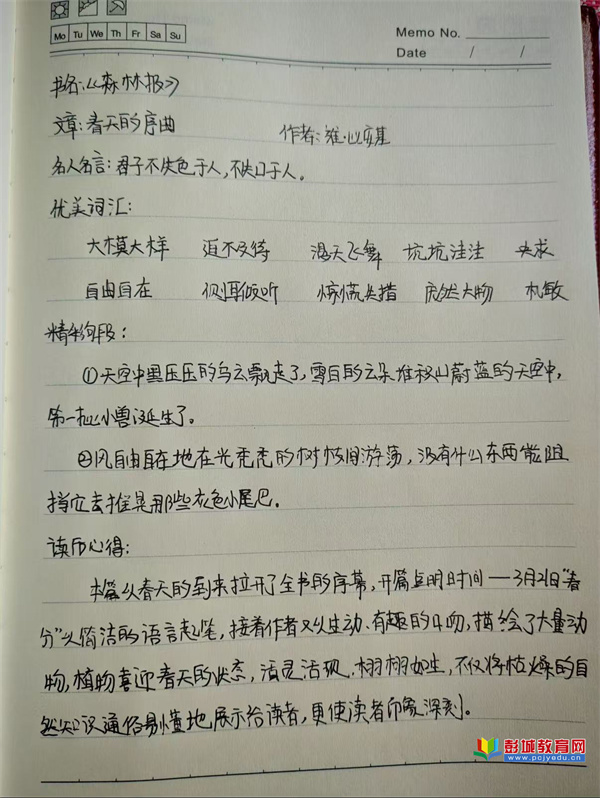 Mo Tu We Th Fr Sa Su
Memo No.
Date / /
书名:《森林报》
文章:春天的序曲
作者:维·比安基
名人名言:君子不失色于人,不失口于人。
优美词汇:
大模大样 迫不及待 漫天飞舞 坑坑洼洼 央求
自由自在 侧耳倾听 惊慌失措 庞然大物 机敏
精彩句段:
①天空中黑压压的乌云飘走了,雪白的云朵堆积山蔚蓝的天空中,
第一批小兽诞生了。
②风自由自在地在光秃秃的树枝间游荡,没有什么东西能阻
挡它去推晃那些灰色小尾巴。
读后心得:
本篇从春天的到来拉开了全书的序幕,开篇点明时间——3月21日“春
分”以简洁的语言起笔,接着作者又以生动、有趣的口吻,描绘了大量动
物,植物喜迎春天的状态,活灵活现.栩栩如生,不仅将枯燥的自
然知识通俗易懂地展示给读者,更使读者印象深刻。
彭城教育网
www.pcjyedu.cn